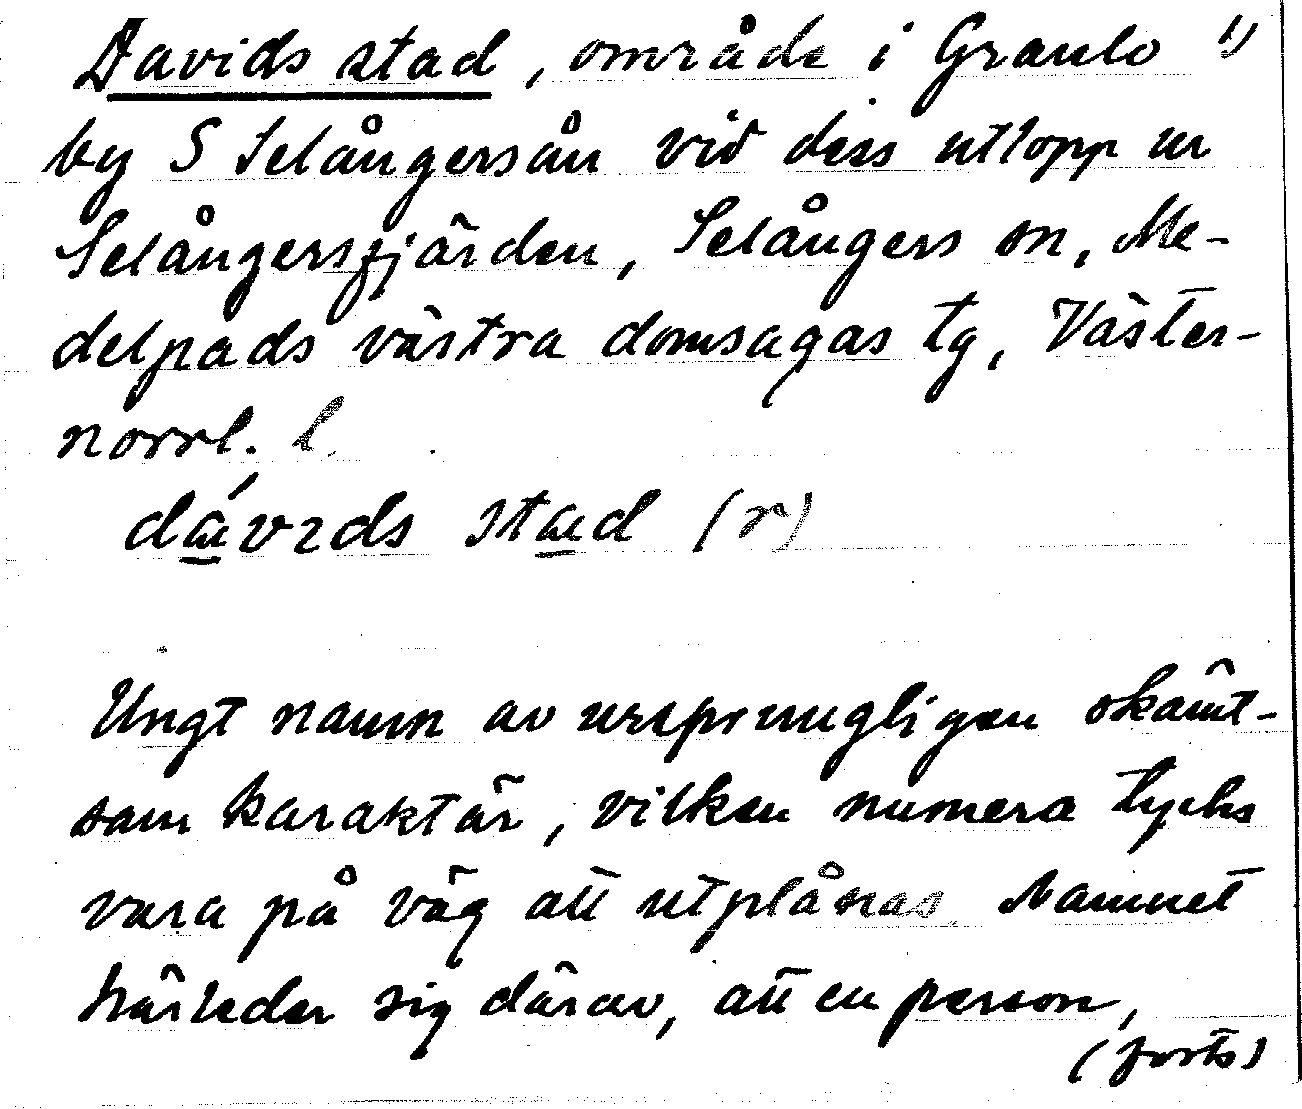 Davids stad, område i Granlo 1)
by S Selångersån vid dess utlopp ur
Selångersfjärden, Selångers sn, Me-
delpads västra domsagas tg, Väster-
norrl. l.
dávɪds stad (r)
Ungt namn av ursprungligen skämt-
sam karaktär, vilken numera tycks
vara på väg att utplånas. Namnet
härleder sig därav, att en person,
(forts)